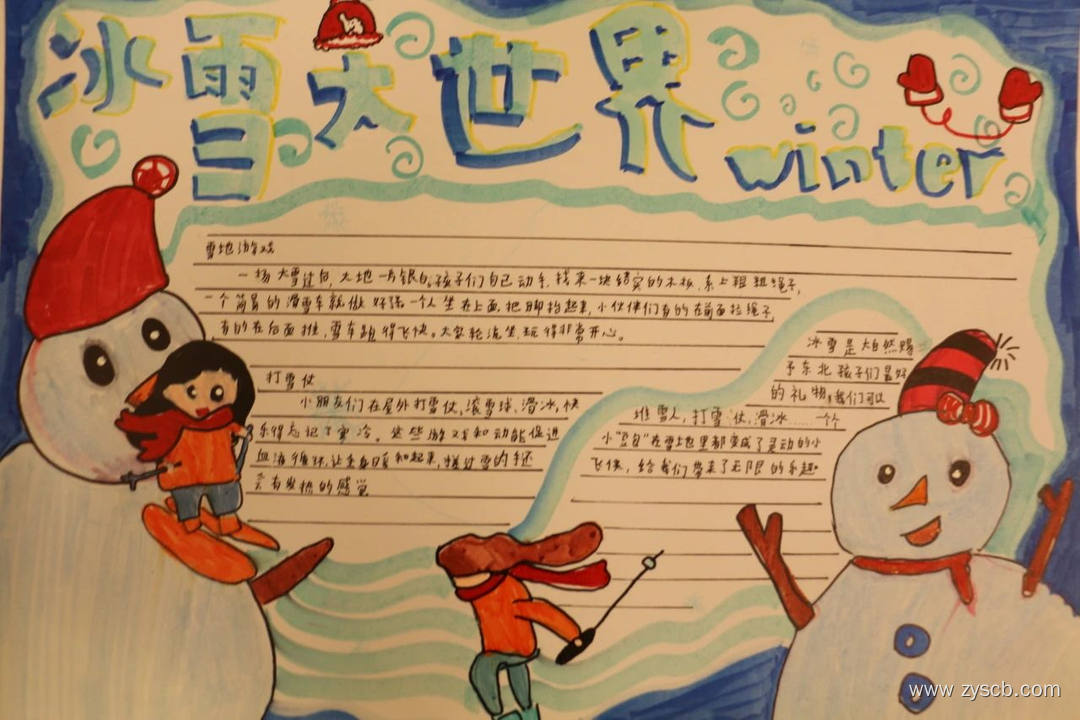 冰雪大世界
winter
雪地游戏
一场大雪过后,大地一片银白,孩子们自己动手,找来一块结实的木板,系上粗粗绳子,
一个简易的滑雪车就做好啦一个人坐在上面,把脚抬起来,小伙伴们有的在前面拉绳子,
有的在后面推,雪车跑得飞快。大家轮流坐玩得非常开心。
打雪仗
小朋友们在屋外打雪仗,滚雪球、滑冰,快
乐得忘记了寒冷。这些游戏和动能促进
血液循环,让全身暖和起来,搓过雪的手还
会有发热的感觉
冰雪是大自然赐
予东北孩子们最好
的礼物,我们可以
堆雪人,打雪仗,滑冰……一个个
小"雪白"在雪地里都变成了灵动的小
飞侠,给我们带来了无限的乐趣
www.zyscb.com